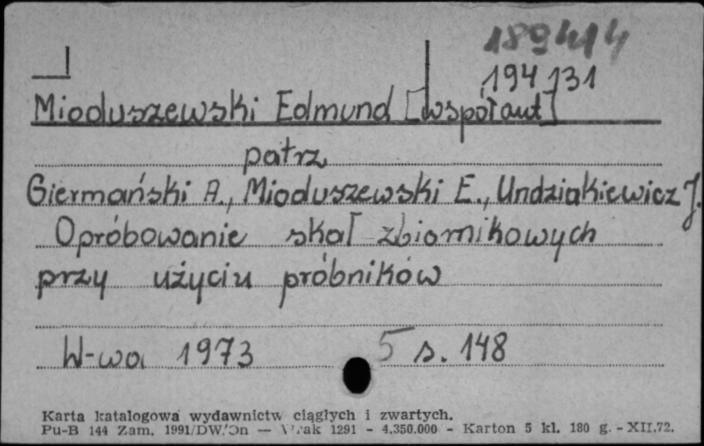 189414
194131
Mioduszewski Edmund [współaut]
patrz
Giermański A., Mioduszewski E., Undziakiewicz J.
Opróbowanie skał zbiornikowych
przy użyciu próbników
W-wa 1973 5 s. 148
Karta katalogowa wydawnictw ciągłych i zwartych.
Pu-B 144 Zam. 1991/DW/Dn — 1291 - 4.350.000 - Karton 5 kl. 180 g. - XII.72.